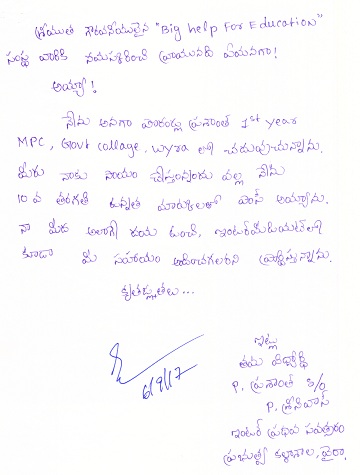 శ్రీయుత గౌరవనీయులైన "Big help For Education"
సంస్థ వారికి నమస్కరించి వ్రాయునది ఏమనగా!
అయ్యా!
నేను అనగా ప్రశాంత్ 1st year
MPC, Govt collage, wyra లో చదువుచున్నాను.
మీరు నాకు సాయం చేస్తున్నందు వల్ల నేను
10 వ తరగతి ఉన్నత మార్కులతో పాస్ అయ్యాను.
నా మీద అలాగే దయ ఉంచి, ఇంటర్మీడియట్‌లో
కూడా మీ సహాయం అందించగలరని ప్రార్థిస్తున్నాను.
కృతజ్ఞతలు...
6/9/17
ఇట్లు
తమ విద్యార్థి
P. ప్రశాంత్ S/o
P. శ్రీనివాస్
ఇంటర్ ప్రథమ సంవత్సరం
ప్రభుత్వ కళాశాల, వైరా.